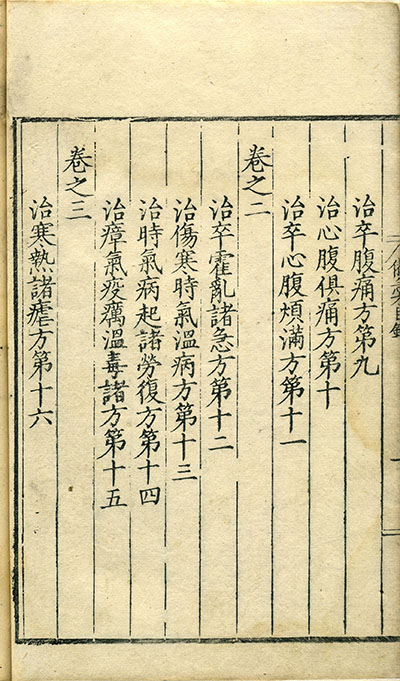 治卒腹痛方第九
治心腹俱痛方第十
治卒心腹煩滿方第十一
卷之二
治卒霍亂諸急方第十二
治傷寒時氣溫病方第十三
治時氣病起諸勞復方第十四
治瘴氣疫癘溫毒諸方第十五
卷之三
治寒熱諸瘧方第十六